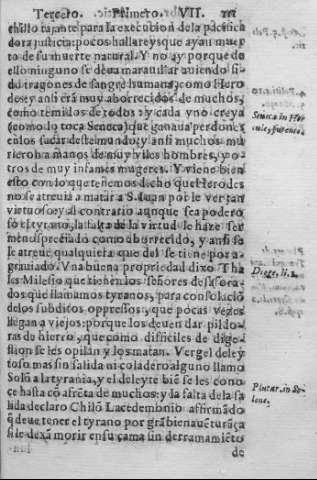 Tercero. Numero. VII. 111
chillo tajante para la execucion de la pacificadora
dora justicia: pocos hallareys que ayan muerto
to de su muerte natural. Y no ay porque de
ello ninguno se deua marauillar auiendo sido
dragones de sangre humana, como Hero
des y ansi erã muy aborrecidos de muchos,
como temidos de todos: y cada vno creya
(como lo toca Seneca) que ganaua perdones
en los sacar deste mundo: y ansi muchos mu
rierõ a manos de muy viles hombres, y o-
tros de muy infames mugeres. Y viene bien
esto con lo que tenemos dicho que Herodes
no se atreuia a matar a S. Iuan por le ver tan
virtuoso: y al contrario aunque sea podero
so el tyrano, la falta de la virtud le haze ser
menospreciado como aborrecido, y ansi se
le atreue qualquiera que del se tiene por a-
grauiado. Vna buena propriedad dixo Tha
les Milesio que tienen los señores desaforados
dos que llamamos tyranos, para consolaciõ
de los subditos oppressos, que pocas vezes
llegan a viejos: porque los deuen dar pildo-
ras de hierro, que como difficiles de dige-
stion se les opilan y los matan. Vergel deley
toso mas sin salida ni coladero alguno llamo
Solõ a la tyrania, y el deleyte biẽ se les cono
ce hasta cõ afrẽta de muchos: y la falta de sa
lida declaro Chilõ Lacedemonio affirmãdo
q̃ deue tener el tyrano por grã bienauẽturãça
si le dexã morir en su cama sin derramamiẽto
de
Seneca in Her
cule, furente.
Dioge. li. 1.
Plutar. in So-
lone.